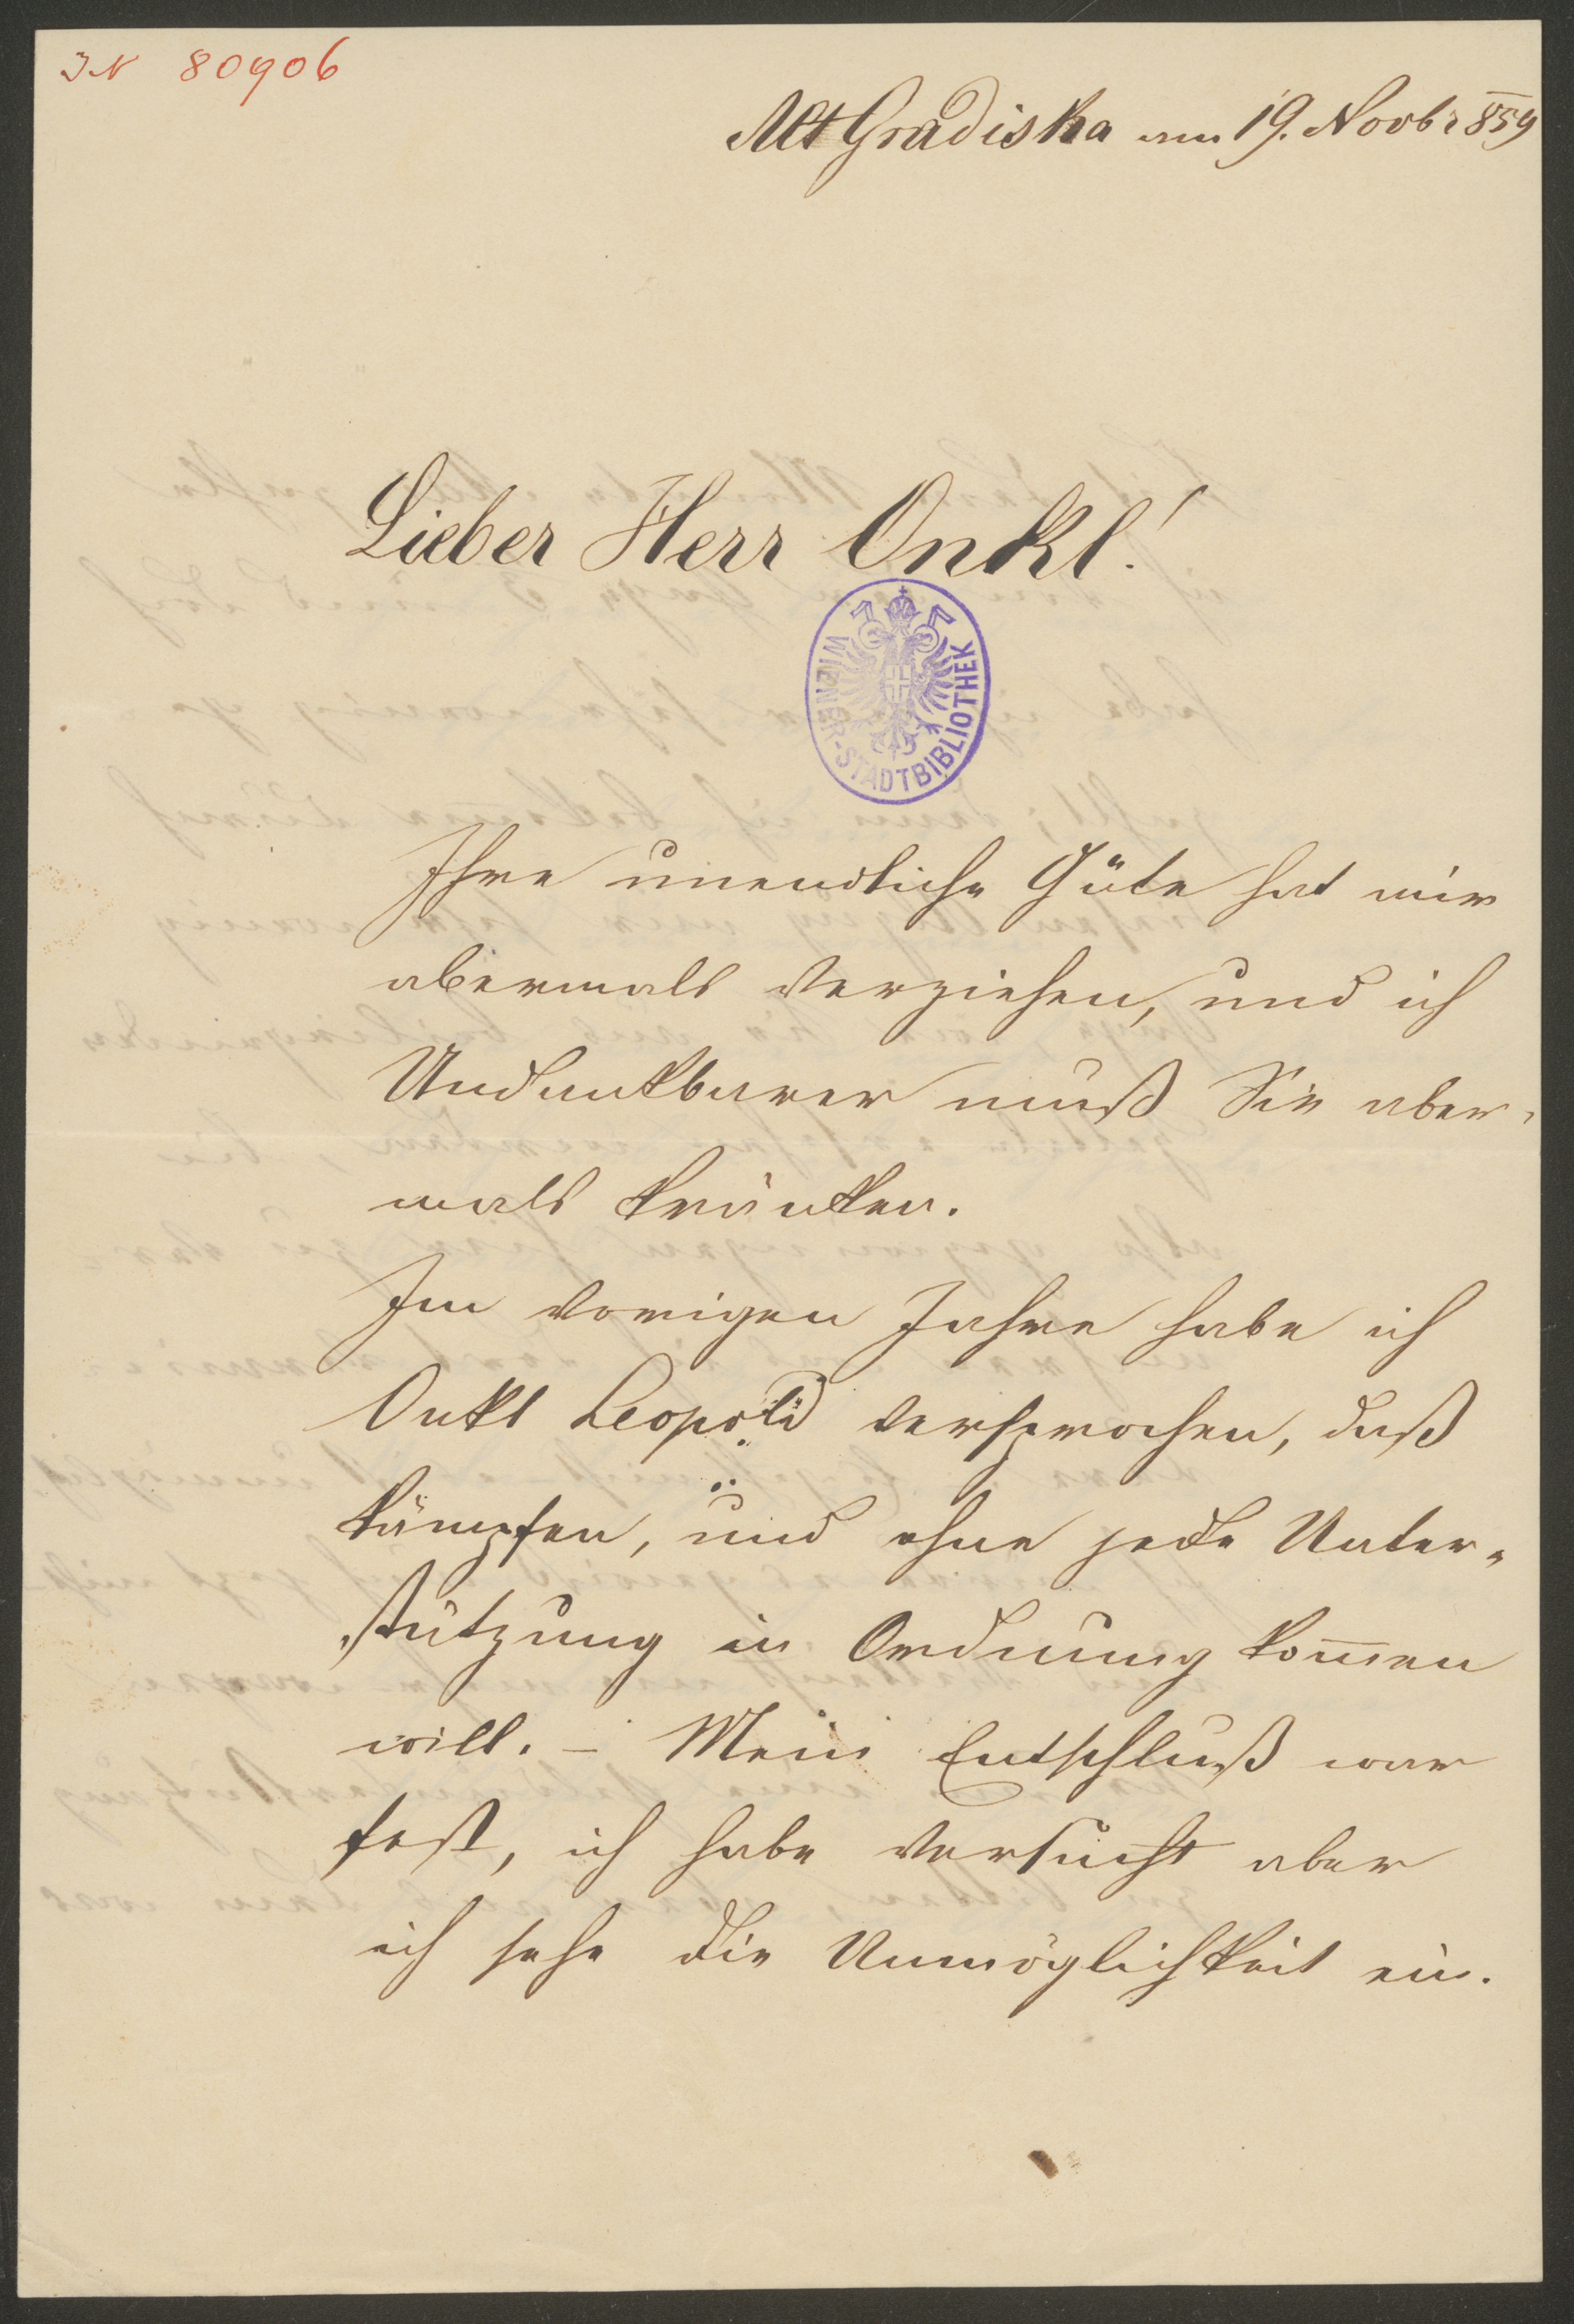 JN 80906
Alt Gradiska am 19. Novbr 859
Lieber Herr Onkl!
WIENER-STADTBIBLIOTHEK
Ihre unendliche Güte hat mir
abermals verziehen, und ich
Undankbarer muß Sie aber-
mals kränken.
Im vorigen Jahre habe ich
Onkl Leopold versprochen, daß
kämpfen, und ohne jede Unter-
stützung in Ordnung kom̅en
will. – Mein Entschluß war
fest, ich habe versucht aber
ich sehe die Unmöglichkeit ein.